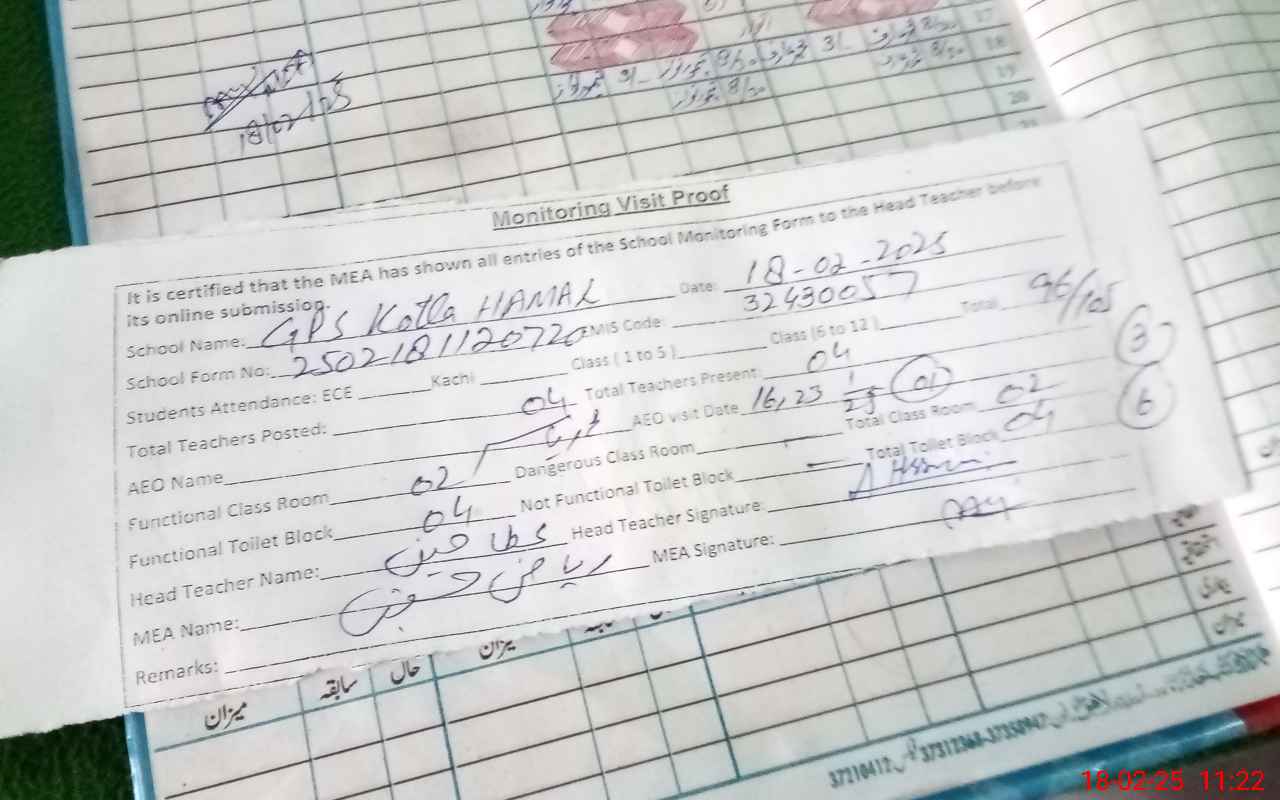 18/02/25
17
18
19
20
Monitoring Visit Proof
It is certified that the MEA has shown all entries of the School Monitoring Form to the Head Teacher before
its online submission.
School Name: GPS Kotla HAMAL Date: 18-02-2025
School Form No: 2502181120720 EMIS Code: 32430057
Students Attendance: ECE Kachi Class ( 1 to 5 ) Class (6 to 12 ) Total 96/105
Total Teachers Posted: 04 Total Teachers Present: 04 3
AEO Name AEO visit Date 16,23 1/25 01
Functional Class Room 02 Dangerous Class Room - Total Class Room 02 6
Functional Toilet Block 04 Not Functional Toilet Block - Total Toilet Block 04
Head Teacher Name: عطا حسین Head Teacher Signature:
MEA Name: ریاض حسین MEA Signature:
Remarks:
میزان سابقہ حال میزان
37210412 37312368-37350947
18-02-25 11:22